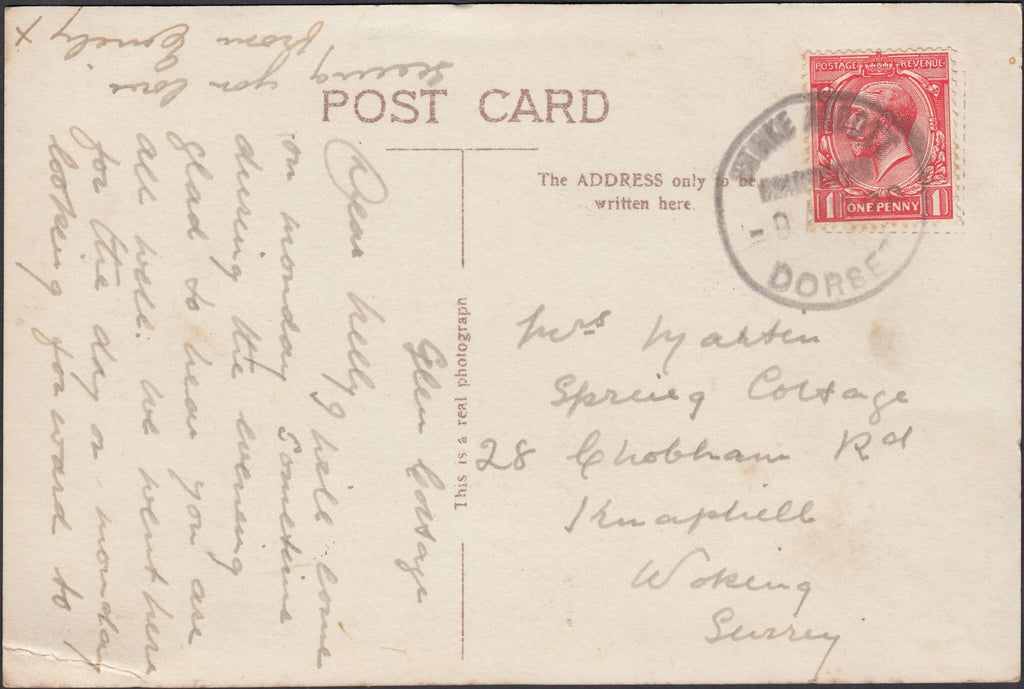 POST CARD
The ADDRESS only to be
written here.
This is a real photograph
POSTAGE REVENUE
1 ONE PENNY 1
DORSET
Mrs Marten
Spring Cottage
28 Chobham Rd
Knaphill
Woking
Surrey
Glen Cottage
Dear Nelly I will come
on monday Sometime
during the evening
glad to hear you are
all well. we went here
for the day on monday
looking forward to
seeing
you love
from Emily
x